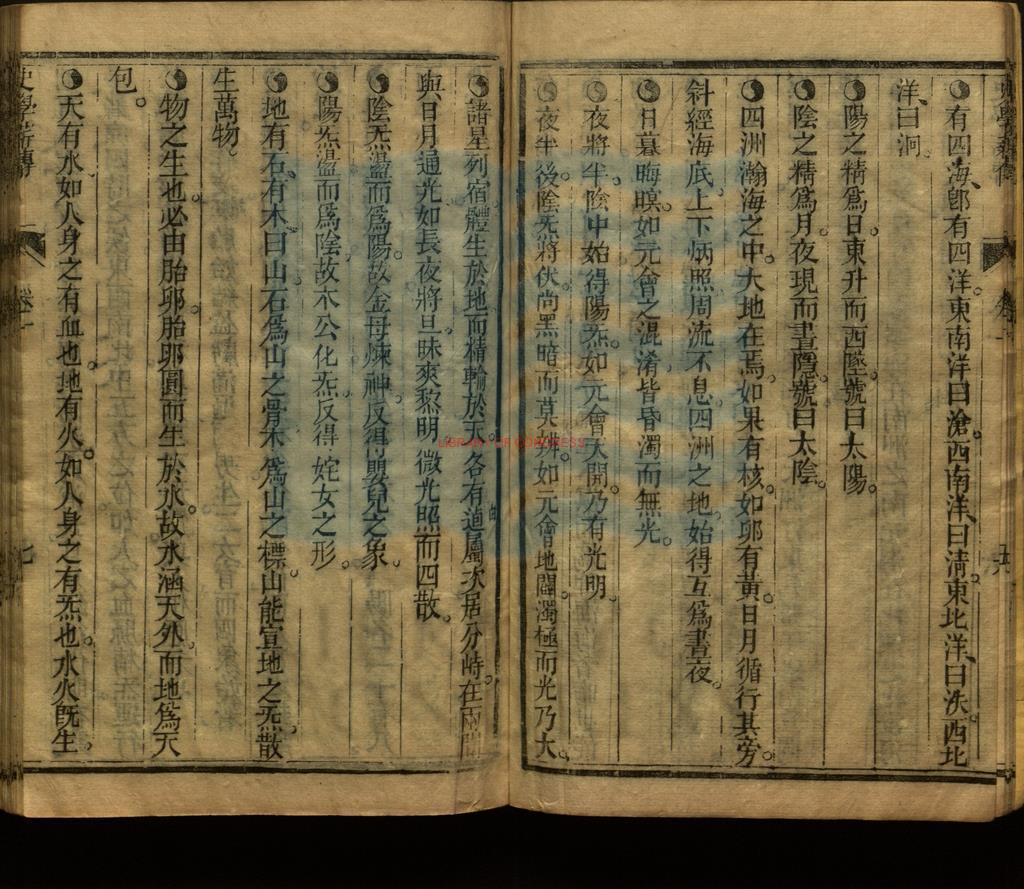 ☯有四海、卽有四洋。東南洋曰滄。西南洋、曰淸。東北洋、曰泆。西北
洋、曰泂。
☯陽之精爲日。東升而西墜。號曰太陽。
☯陰之精爲月。夜現而晝隱。號曰太陰。
☯四洲瀚海之中。大地在焉。如果有核。如卵有黃。日月循行其旁。
斜經海底。上下炳照周流不息。四洲之地。始得互爲晝夜。
☯日暮晦暝。如元會之混淆。皆昏濁而無光。
☯夜將半。陰中始得陽炁。如元會天開。乃有光明。
☯夜半後。陰炁將伏。尚黑暗而莫辨。如元會地闢。濁極而光乃大。
☯諸星列宿。體生於地。而精輪於天。各有遉屬。次居分峙。在兩間
與日月通光。如長夜將旦。昧爽黎明。微光照而四散。
☯陰炁溫而爲陽。故金母煉神。反得嬰兒之象。
☯陽炁溫而爲陰。故木公化炁。反得姹女之形。
☯地有石、有木、曰山。石爲山之骨。木爲山之標。山能宣地之炁。散
生萬物。
☯物之生也。必由胎卵。胎卵圓而生於水。故水涵天外。而地爲天
包。
☯天有水。如人身之有血也。地有火。如人身之有炁也。水火旣生。
LIBRARY OF CONGRESS
卷一
七